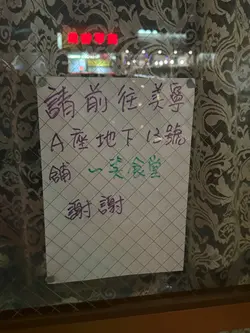 請前往美寧
A座地下12號
舖 一芙食堂
謝謝